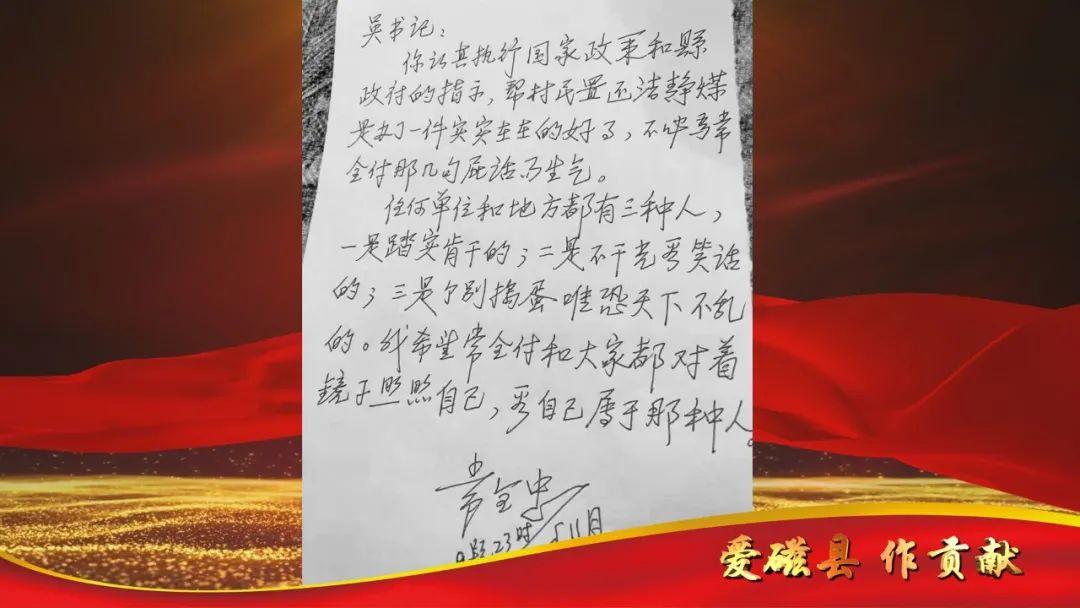 吴书记：
你认真执行国家政策和縣
政府的指示，帮村民置还洁静煤
是办了一件实实在在的好事，不必为常
全付那几句屁话而生气。
任何单位和地方都有三种人，
一是踏实肯干的；二是不干光看笑话
的；三是个别搗蛋唯恐天下不乱
的。我希望常全付和大家都对着
镜子照照自己，看自己属于那种人。
常全忠
23时 11月
爱磁县 作贡献